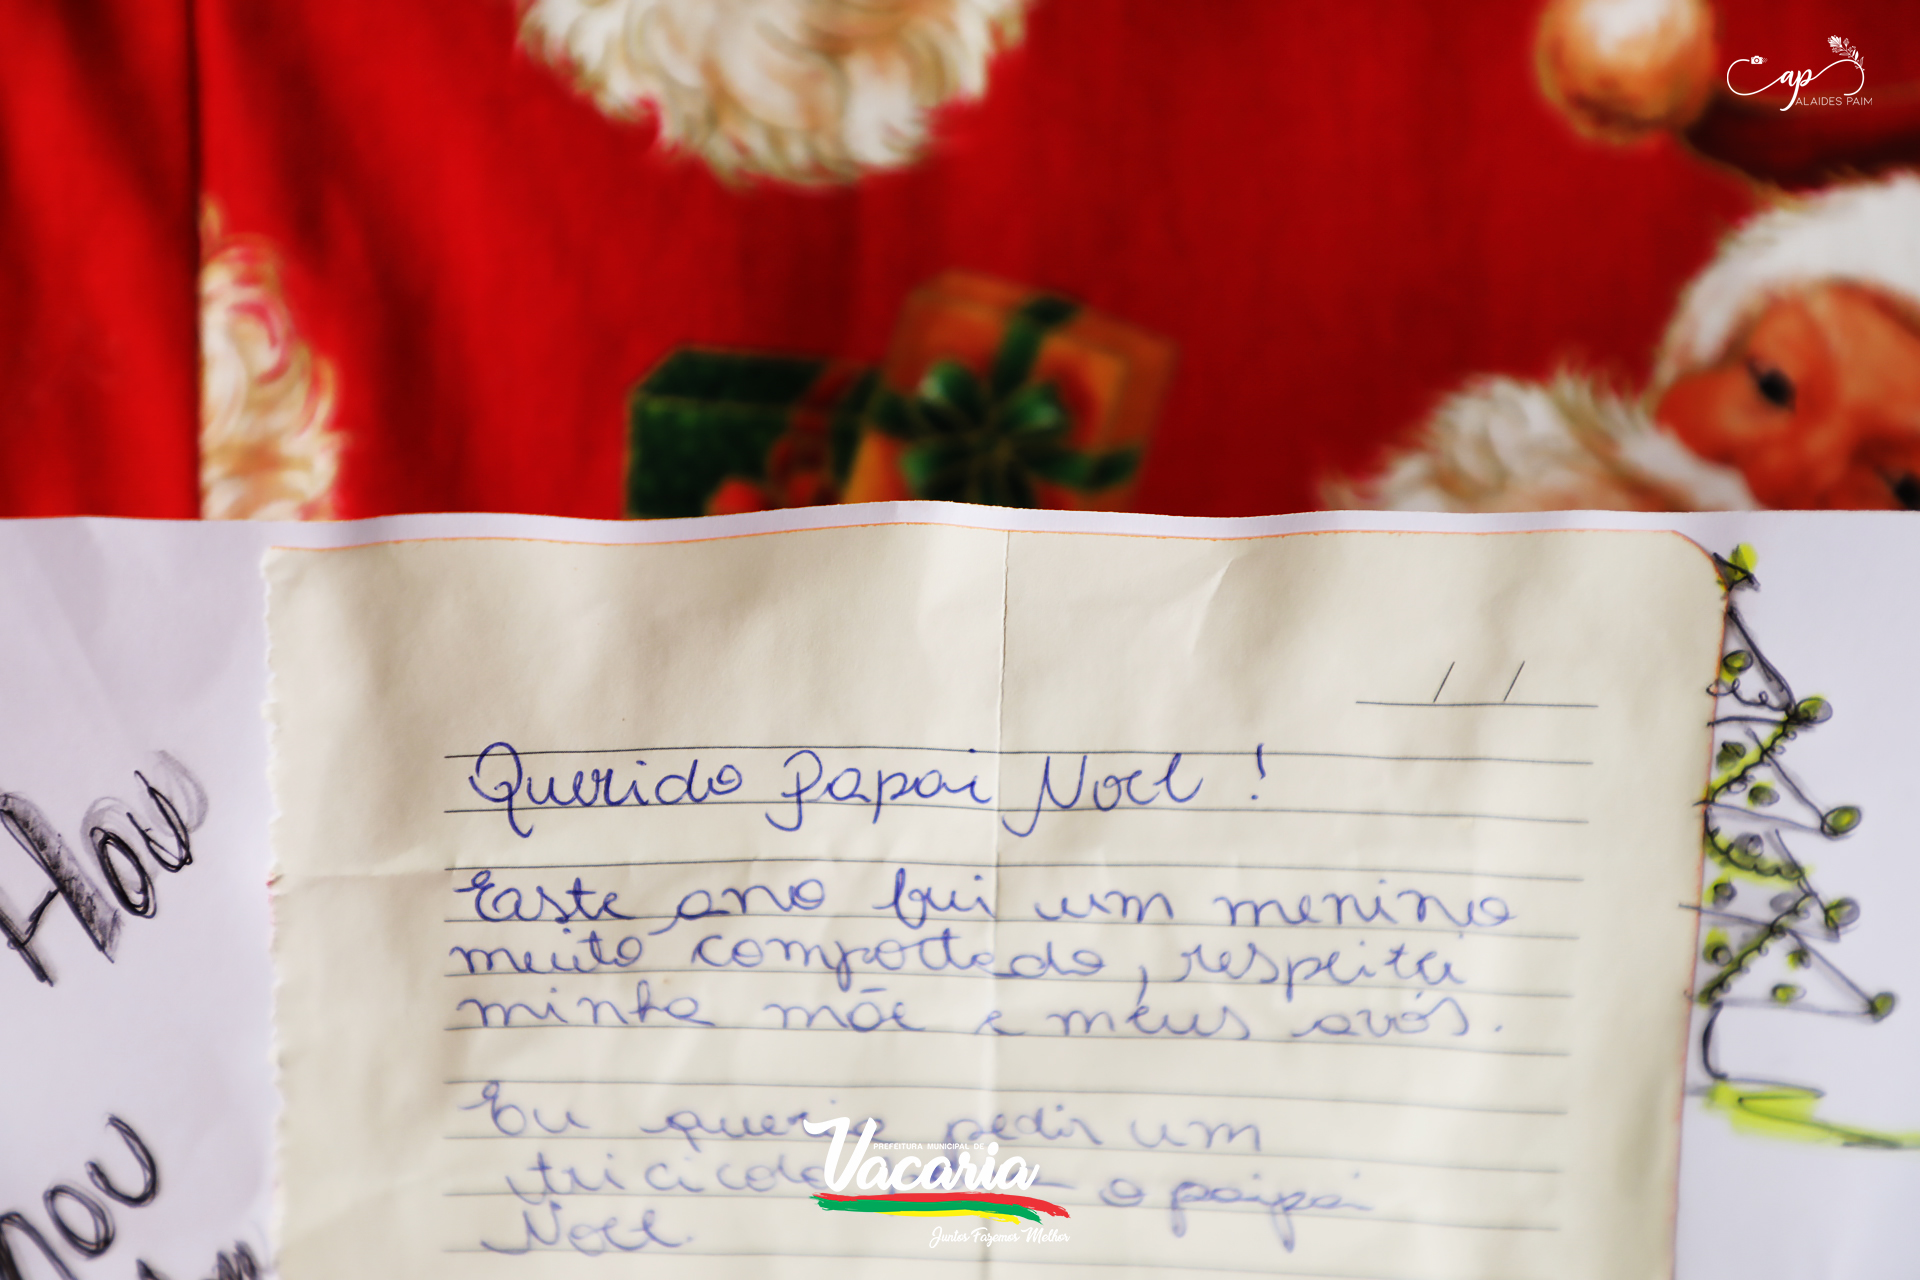 ap
ALAIDES PAIM
Querido Papai Noel !
Este ano fui um menino
muito comportado, respeitei
minha mãe e meus avós.
Eu queria pedir um
tricicolo o paipai
Noel.
Hou
hou
PREFEITURA MUNICIPAL DE
Vacaria
Juntos Fazemos Melhor